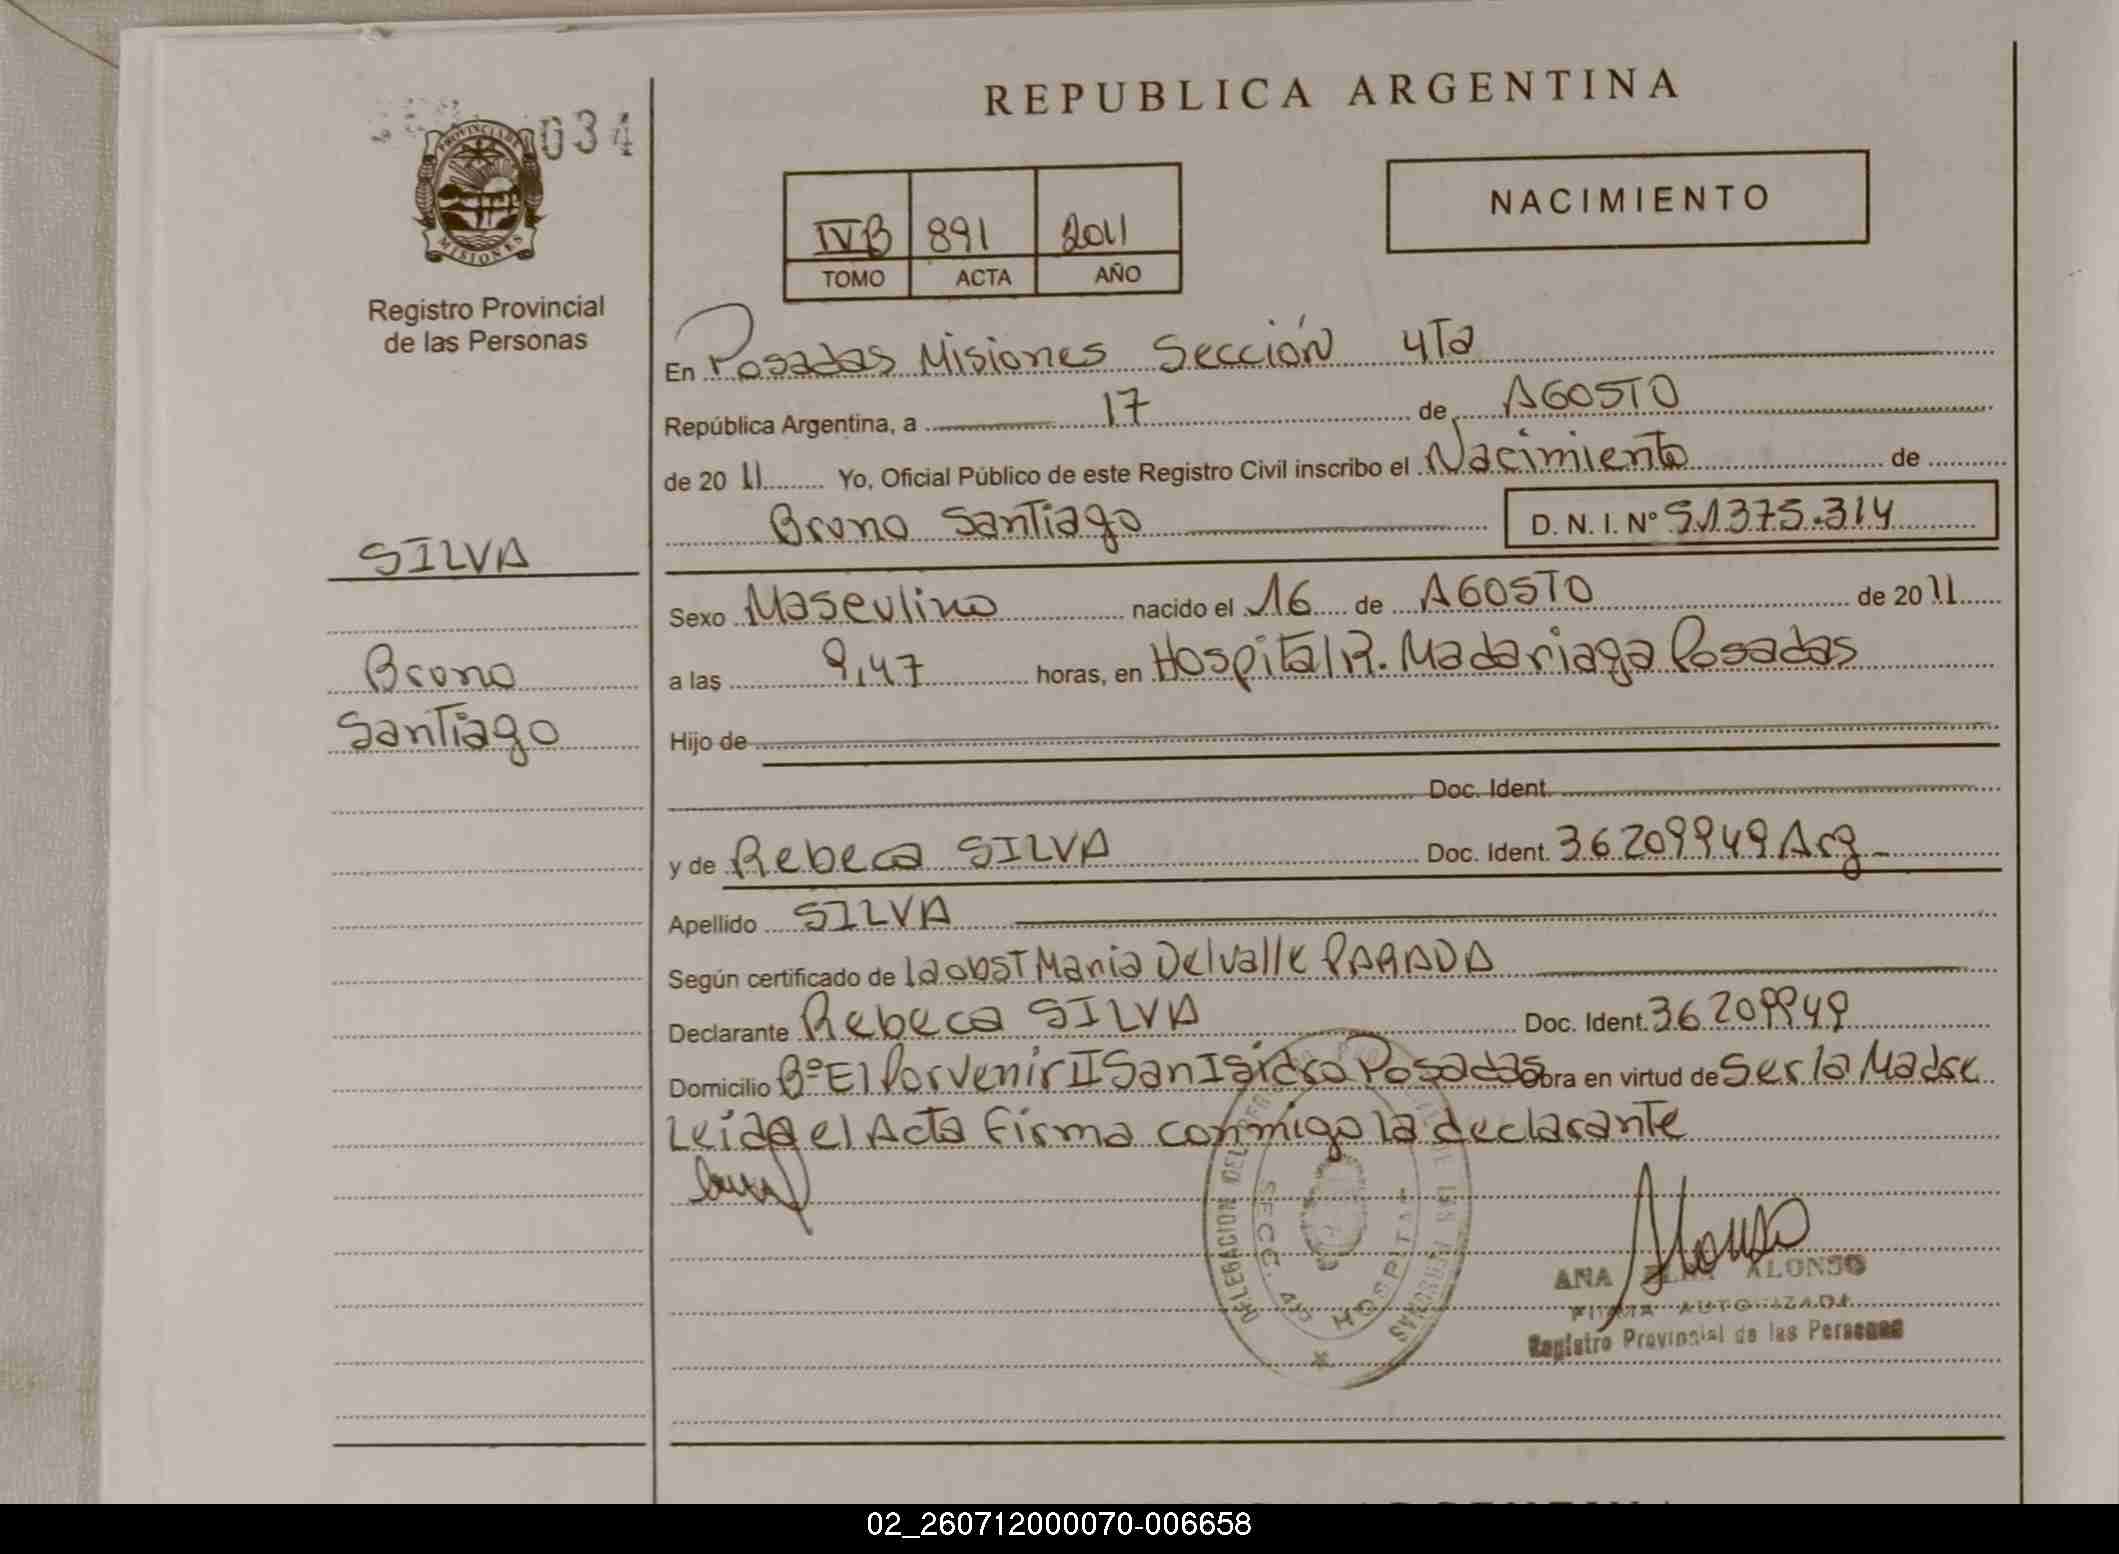 REPUBLICA ARGENTINA
034
PROVINCIA DE MISIONES
Registro Provincial
de las Personas
IVB 891 2011
TOMO ACTA AÑO
NACIMIENTO
En Posadas Misiones Sección 4Ta
República Argentina, a 17 de AGOSTO
de 20 11 Yo, Oficial Público de este Registro Civil inscribo el Nacimiento de
Bruno Santiago D. N. I. Nº 51375.314
SILVA
Bruno
Santiago
Sexo Masculino nacido el 16 de AGOSTO de 20 11
a las 9,47 horas, en Hospital R. Madariaga Posadas
Hijo de
Doc. Ident.
y de Rebeca SILVA Doc. Ident. 36209949 Arg
Apellido SILVA
Según certificado de la obst Maria Del valle PARADA
Declarante Rebeca SILVA Doc. Ident. 36209949
Domicilio Bº El Porvenir II San Isidro Posadas Obra en virtud de Ser la Madre
Leida el Acta Firma conmigo la declarante
DELEGACION DEL REGISTRO PROVINCIAL DE LAS PERSONAS
SECC. 4ta HOSPITAL
Alonso
ANA ALONSO
FIRMA AUTORIZADA
Registro Provincial de las Personas
02_260712000070-006658